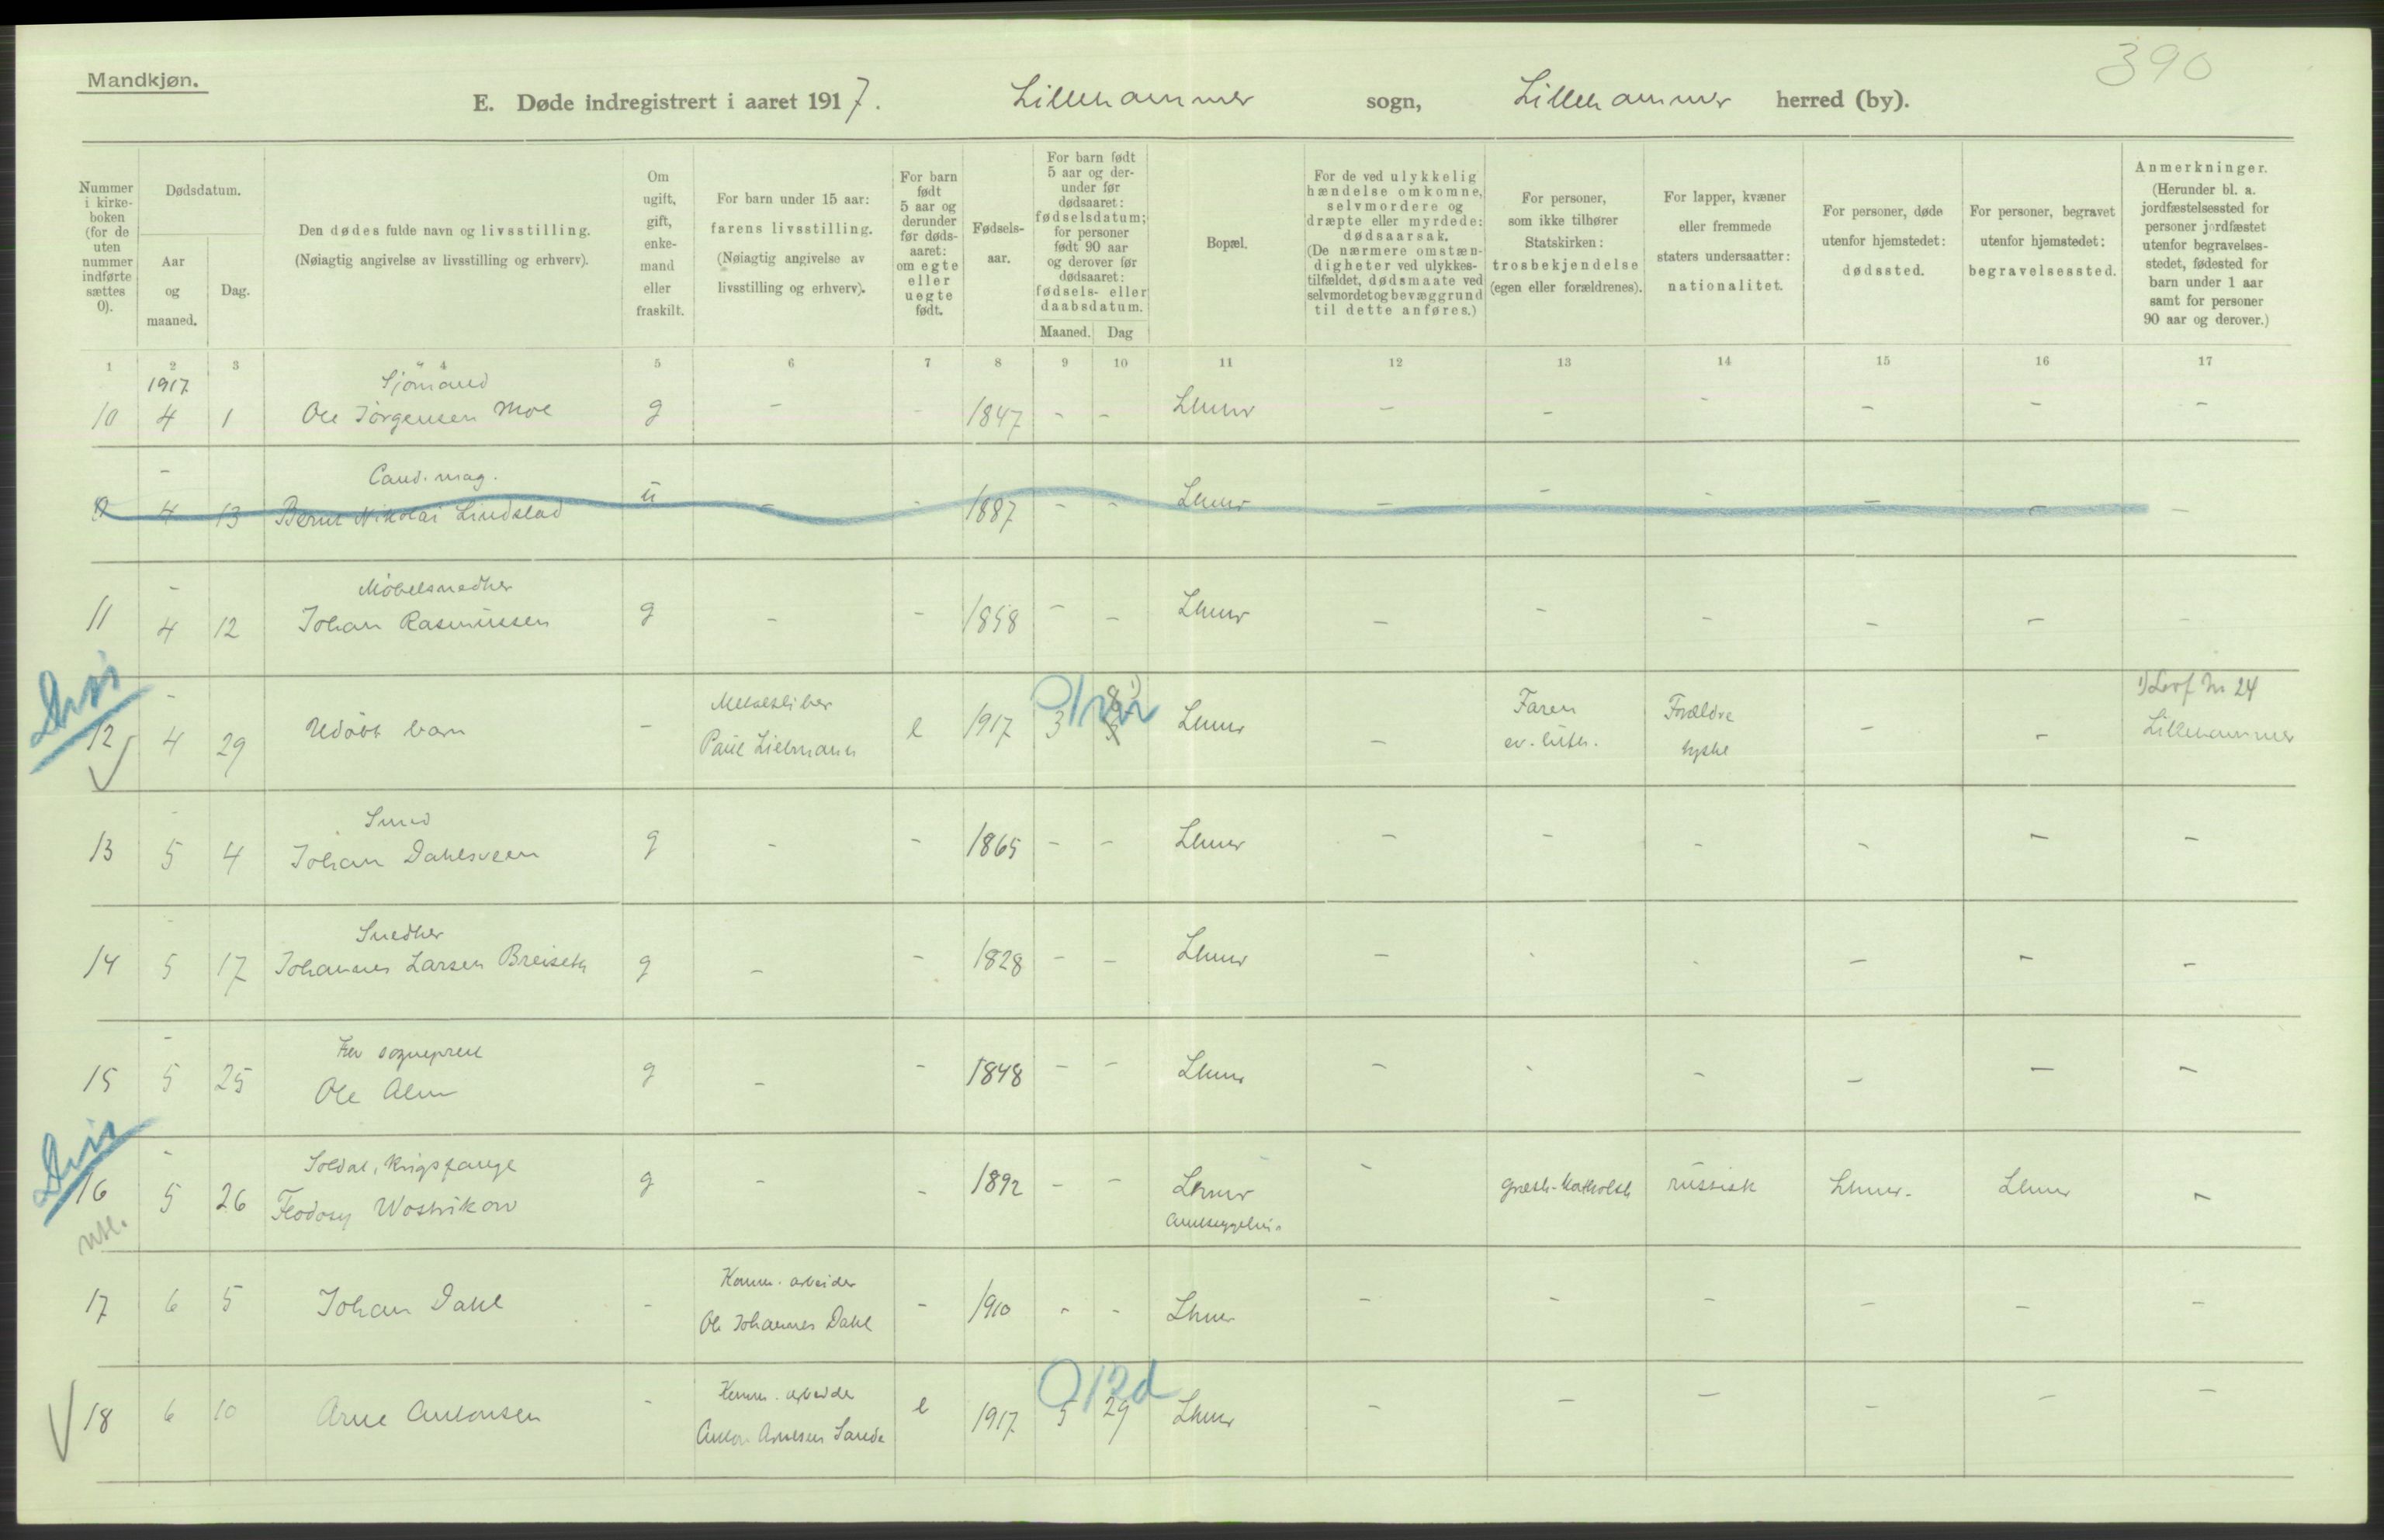 Mandkjøn.
390
E. Døde indregistrert i aaret 1917. Lillehammer sogn, Lillehammer herred (by).
Nummer i kirke-boken (for de uten nummer indførte sættes 0).
Dødsdatum.
Aar og maaned.
Dag.
Den dødes fulde navn og livsstilling.
(Nøiagtig angivelse av livsstilling og erhverv).
Om ugift, gift, enke-mand eller fraskilt.
For barn under 15 aar: farens livsstilling.
(Nøiagtig angivelse av livsstilling og erhverv).
For barn født 5 aar og derunder før døds-aaret: om egte eller uegte født.
Fødsels-aar.
For barn født 5 aar og der-under før dødsaaret: fødselsdatum; for personer født 90 aar og derover før dødsaaret: fødsels- eller daabsdatum.
Maaned. Dag
Bopæl.
For de ved ulykkelig hændelse omkomne, selvmordere og dræpte eller myrdede: dødsaarsak.
(De nærmere omstæn-digheter ved ulykkes-tilfældet, dødsmaate ved selvmordet og bevæggrund til dette anføres.)
For personer, som ikke tilhører Statskirken: trosbekjendelse (egen eller forældrenes).
For lapper, kvæner eller fremmede staters undersaatter: nationalitet.
For personer, døde utenfor hjemstedet: dødssted.
For personer, begravet utenfor hjemstedet: begravelsessted.
Anmerkninger.
(Herunder bl. a. jordfæstelsessted for personer jordfæstet utenfor begravelses-stedet, fødested for barn under 1 aar samt for personer 90 aar og derover.)
1 2 3 4 5 6 7 8 9 10 11 12 13 14 15 16 17
1917 Sjømand
10 4 1 Ole Jörgensen Moe g - - 1847 - - Lhmr - - - - - -
- Cand. mag.
9 4 13 Bernt Nikolai Lindstad u - - 1887 - - Lhmr - - - - - -
- Möbelsnedker
11 4 12 Johan Rasmussen g - - 1858 - - Lhmr - - - - - -
- Faren Forældre
12 4 29 Udöbt barn - Paul Liebmann e 1917 3 8 Lhmr - ev. luth. tyske - - Lillehammer
- Smed
13 5 4 Johan Dahlsveen g - - 1865 - - Lhmr - - - - - -
- Snedker
14 5 17 Johannes Larsen Breiseth g - - 1828 - - Lhmr - - - - - -
- Fhv sogneprest
15 5 25 Ole Alm g - - 1848 - - Lhmr - - - - - -
- Soldat, Krigsfange
16 5 26 Feodosy Wostrikow g - - 1892 - - Lhmr - græsk-katholsk russisk Lhmr. Lhmr -
Komm. arbeider
17 6 5 Johan Dahl - Ole Johannes Dahl - 1910 - - Lhmr - - - - - -
Komm. arbeider
18 6 10 Arne Antonsen - Anton Arnesen Sande e 1917 5 29 Lhmr - - - - - -
0/12d